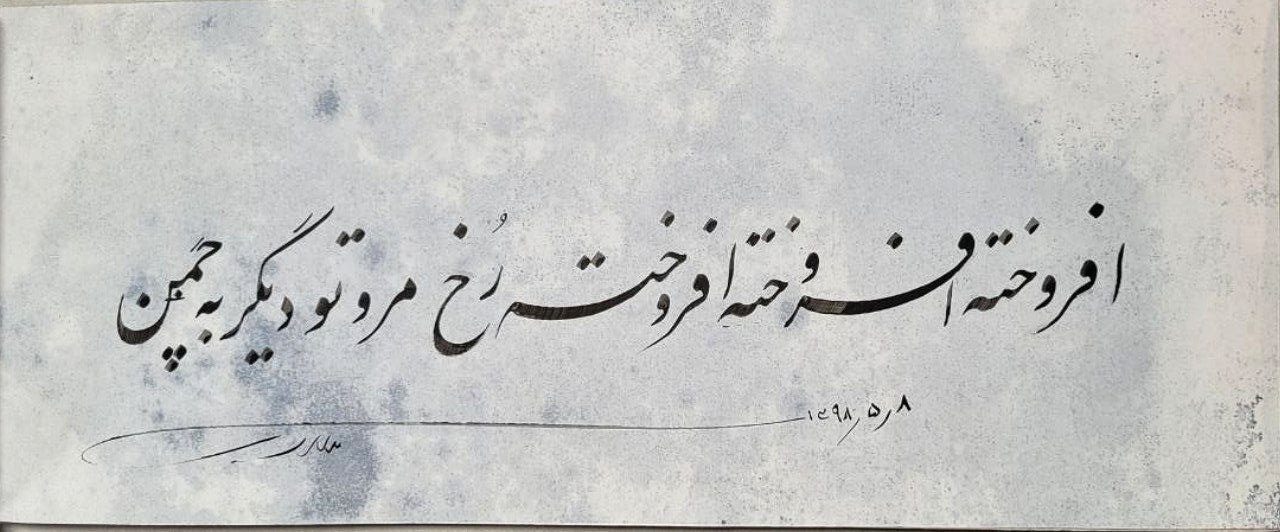 افروخته افروخته افروخته رُخ مرو تو دیگر به چمن
۱۳۹۸٫۵٫۸